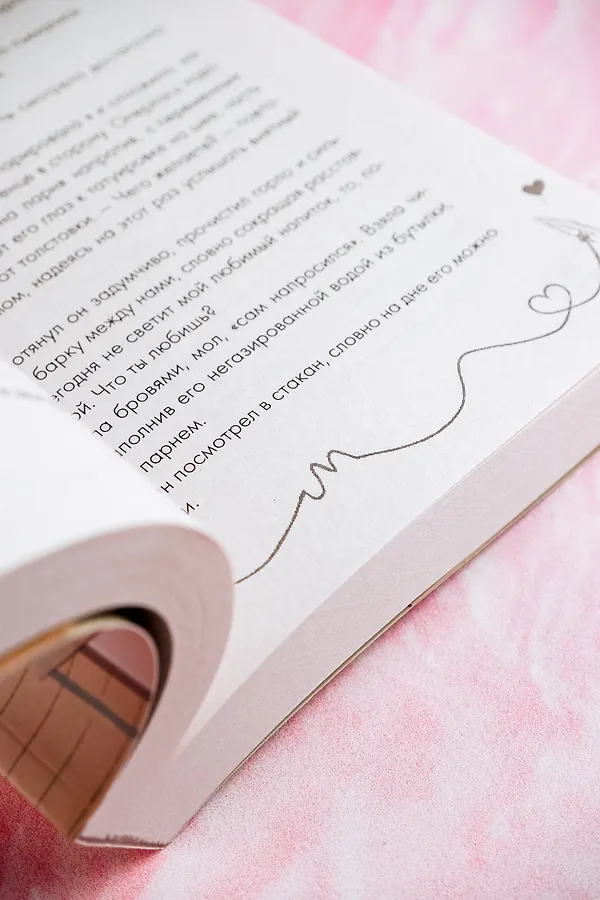 смотрела
орировала я и отложила
в сторону. Оперлась
на парня напротив, с
от его глаз к татуировке на шее,
от толстовки. — Чего желаете? — повто-
ом, надеясь на этот раз услышать внятный
отянул он задумчиво, прочистил горло и силь-
барку между нами, словно сокращая расстоя-
егодня не светит мой любимый напиток, то, по-
ой. Что ты любишь?
ла бровями, мол, «сам напросился». Взяла чи-
аполнив его негазированной водой из бутылки,
парнем.
н посмотрел в стакан, словно на дне его можно
и.